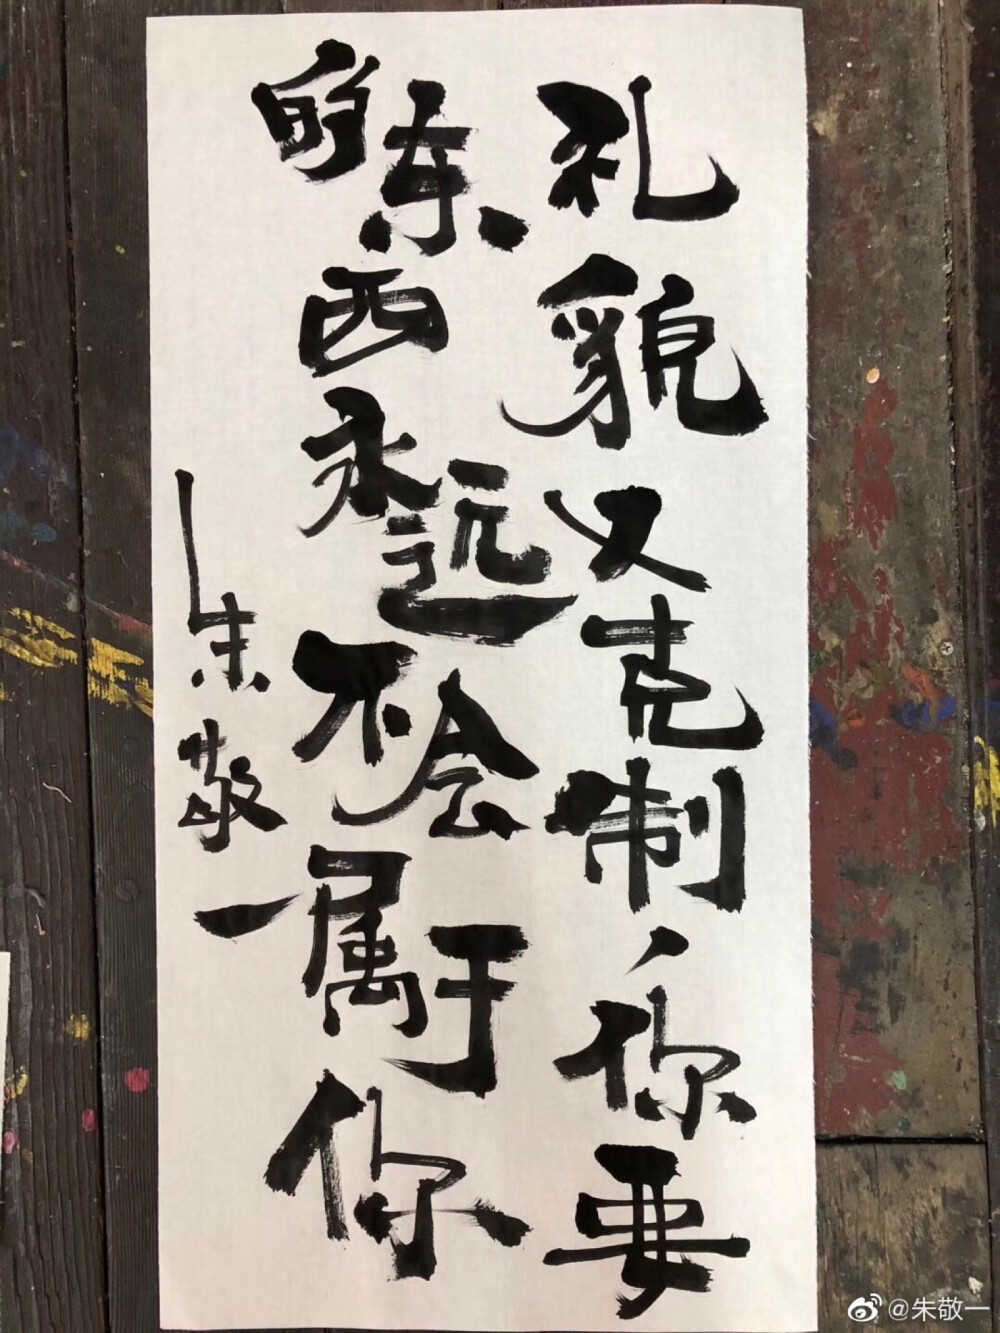 礼貌又克制，你要
的东西永远不会属于你
朱敬一
@朱敬一